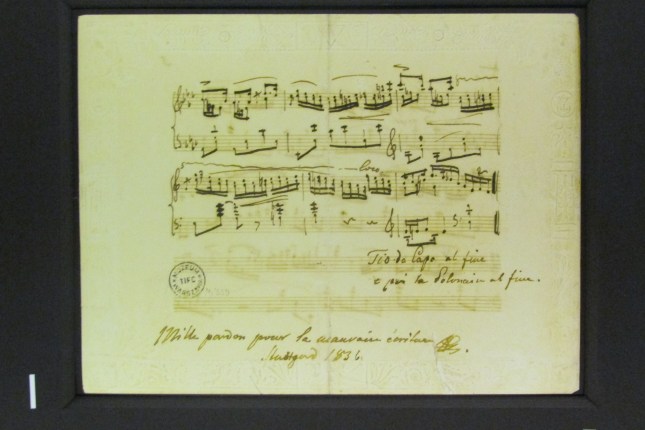 Cres
Trio da Capo al fine
e poi la Polonaise al fine.
MUZEUM
TIFC
Mille pardon pour la mauvaise écriture
Stuttgard 1836